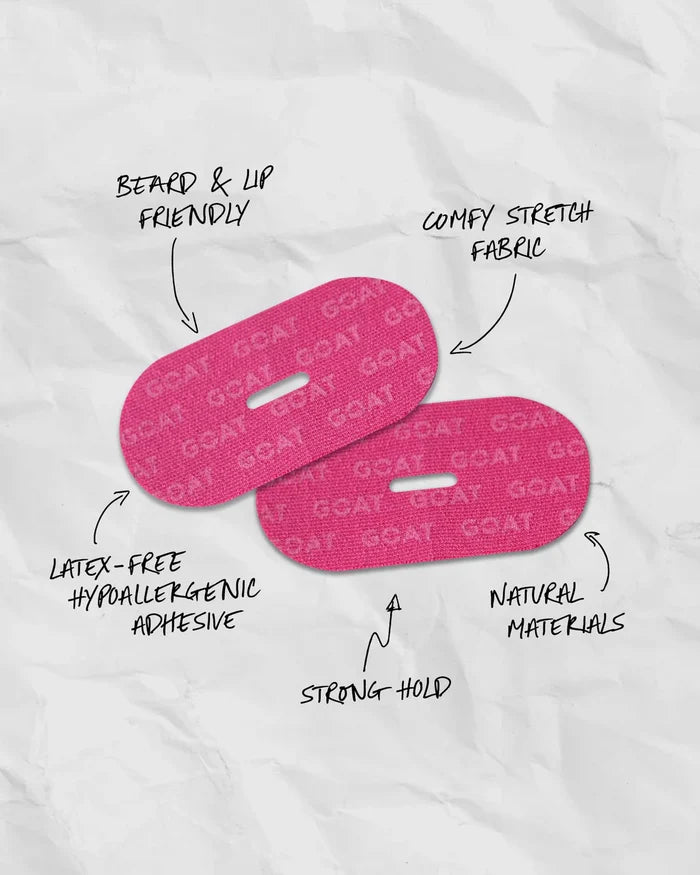 BEARD & LIP
FRIENDLY
COMFY STRETCH
FABRIC
GOAT GOAT GOAT
GOAT GOAT GOAT
GOAT GOAT GOAT
GOAT GOAT
GOAT
GOAT GOAT
GOAT GOAT GOAT
GOAT GOAT GOAT
GOAT GOAT GOAT
LATEX-FREE
HYPOALLERGENIC
ADHESIVE
NATURAL
MATERIALS
STRONG HOLD